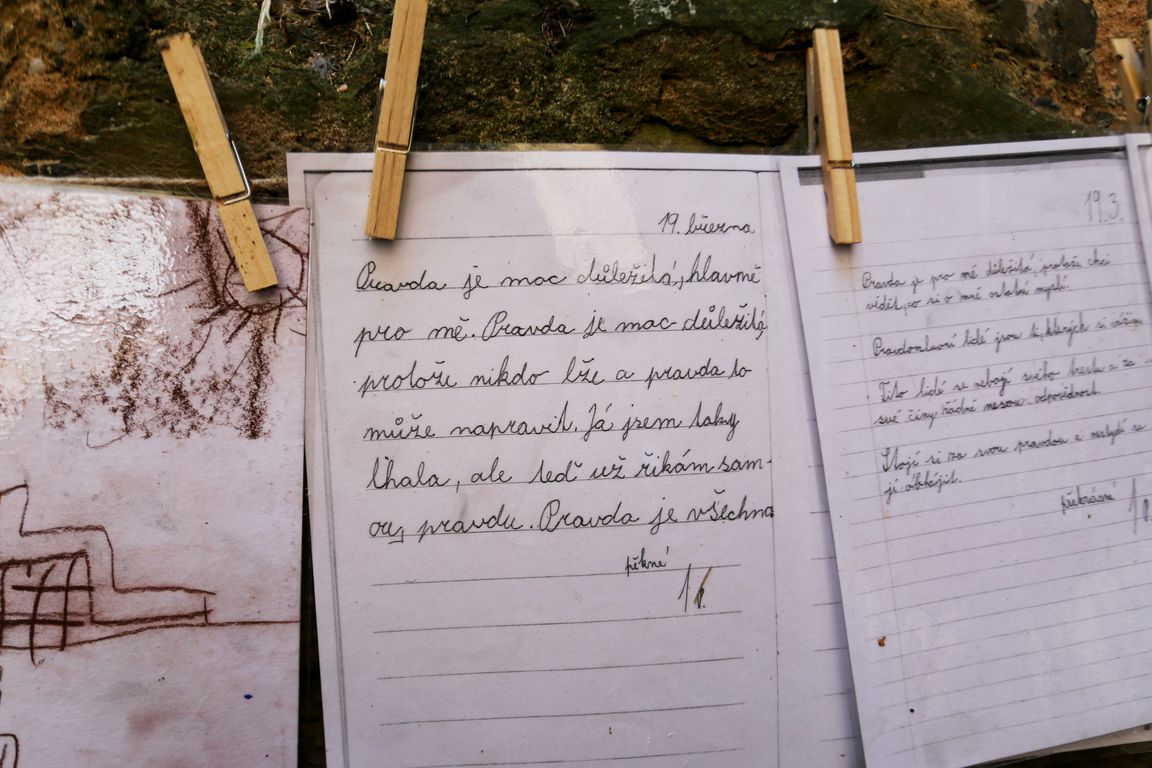 19. března
Pravda je moc důležitá, hlavně
pro mě. Pravda je moc důležitá,
protože nikdo lže a pravda to
může napravit. Já jsem taky
lhala, ale teď už řikám sam-
ou pravdu. Pravda je všechno
pěkné
19.3.
Pravda je pro mě důležitá, protože chci
vědět, co si o mně ostatní myslí.
Pravdomluvní lidé jsou ti, kterých si vážím
Tito lidé se nebojí svého trestu a za
své činy řádně nesou odpovědnost
Stojí si za svou pravdou a nestydí se
jí obhájit.
překrásné